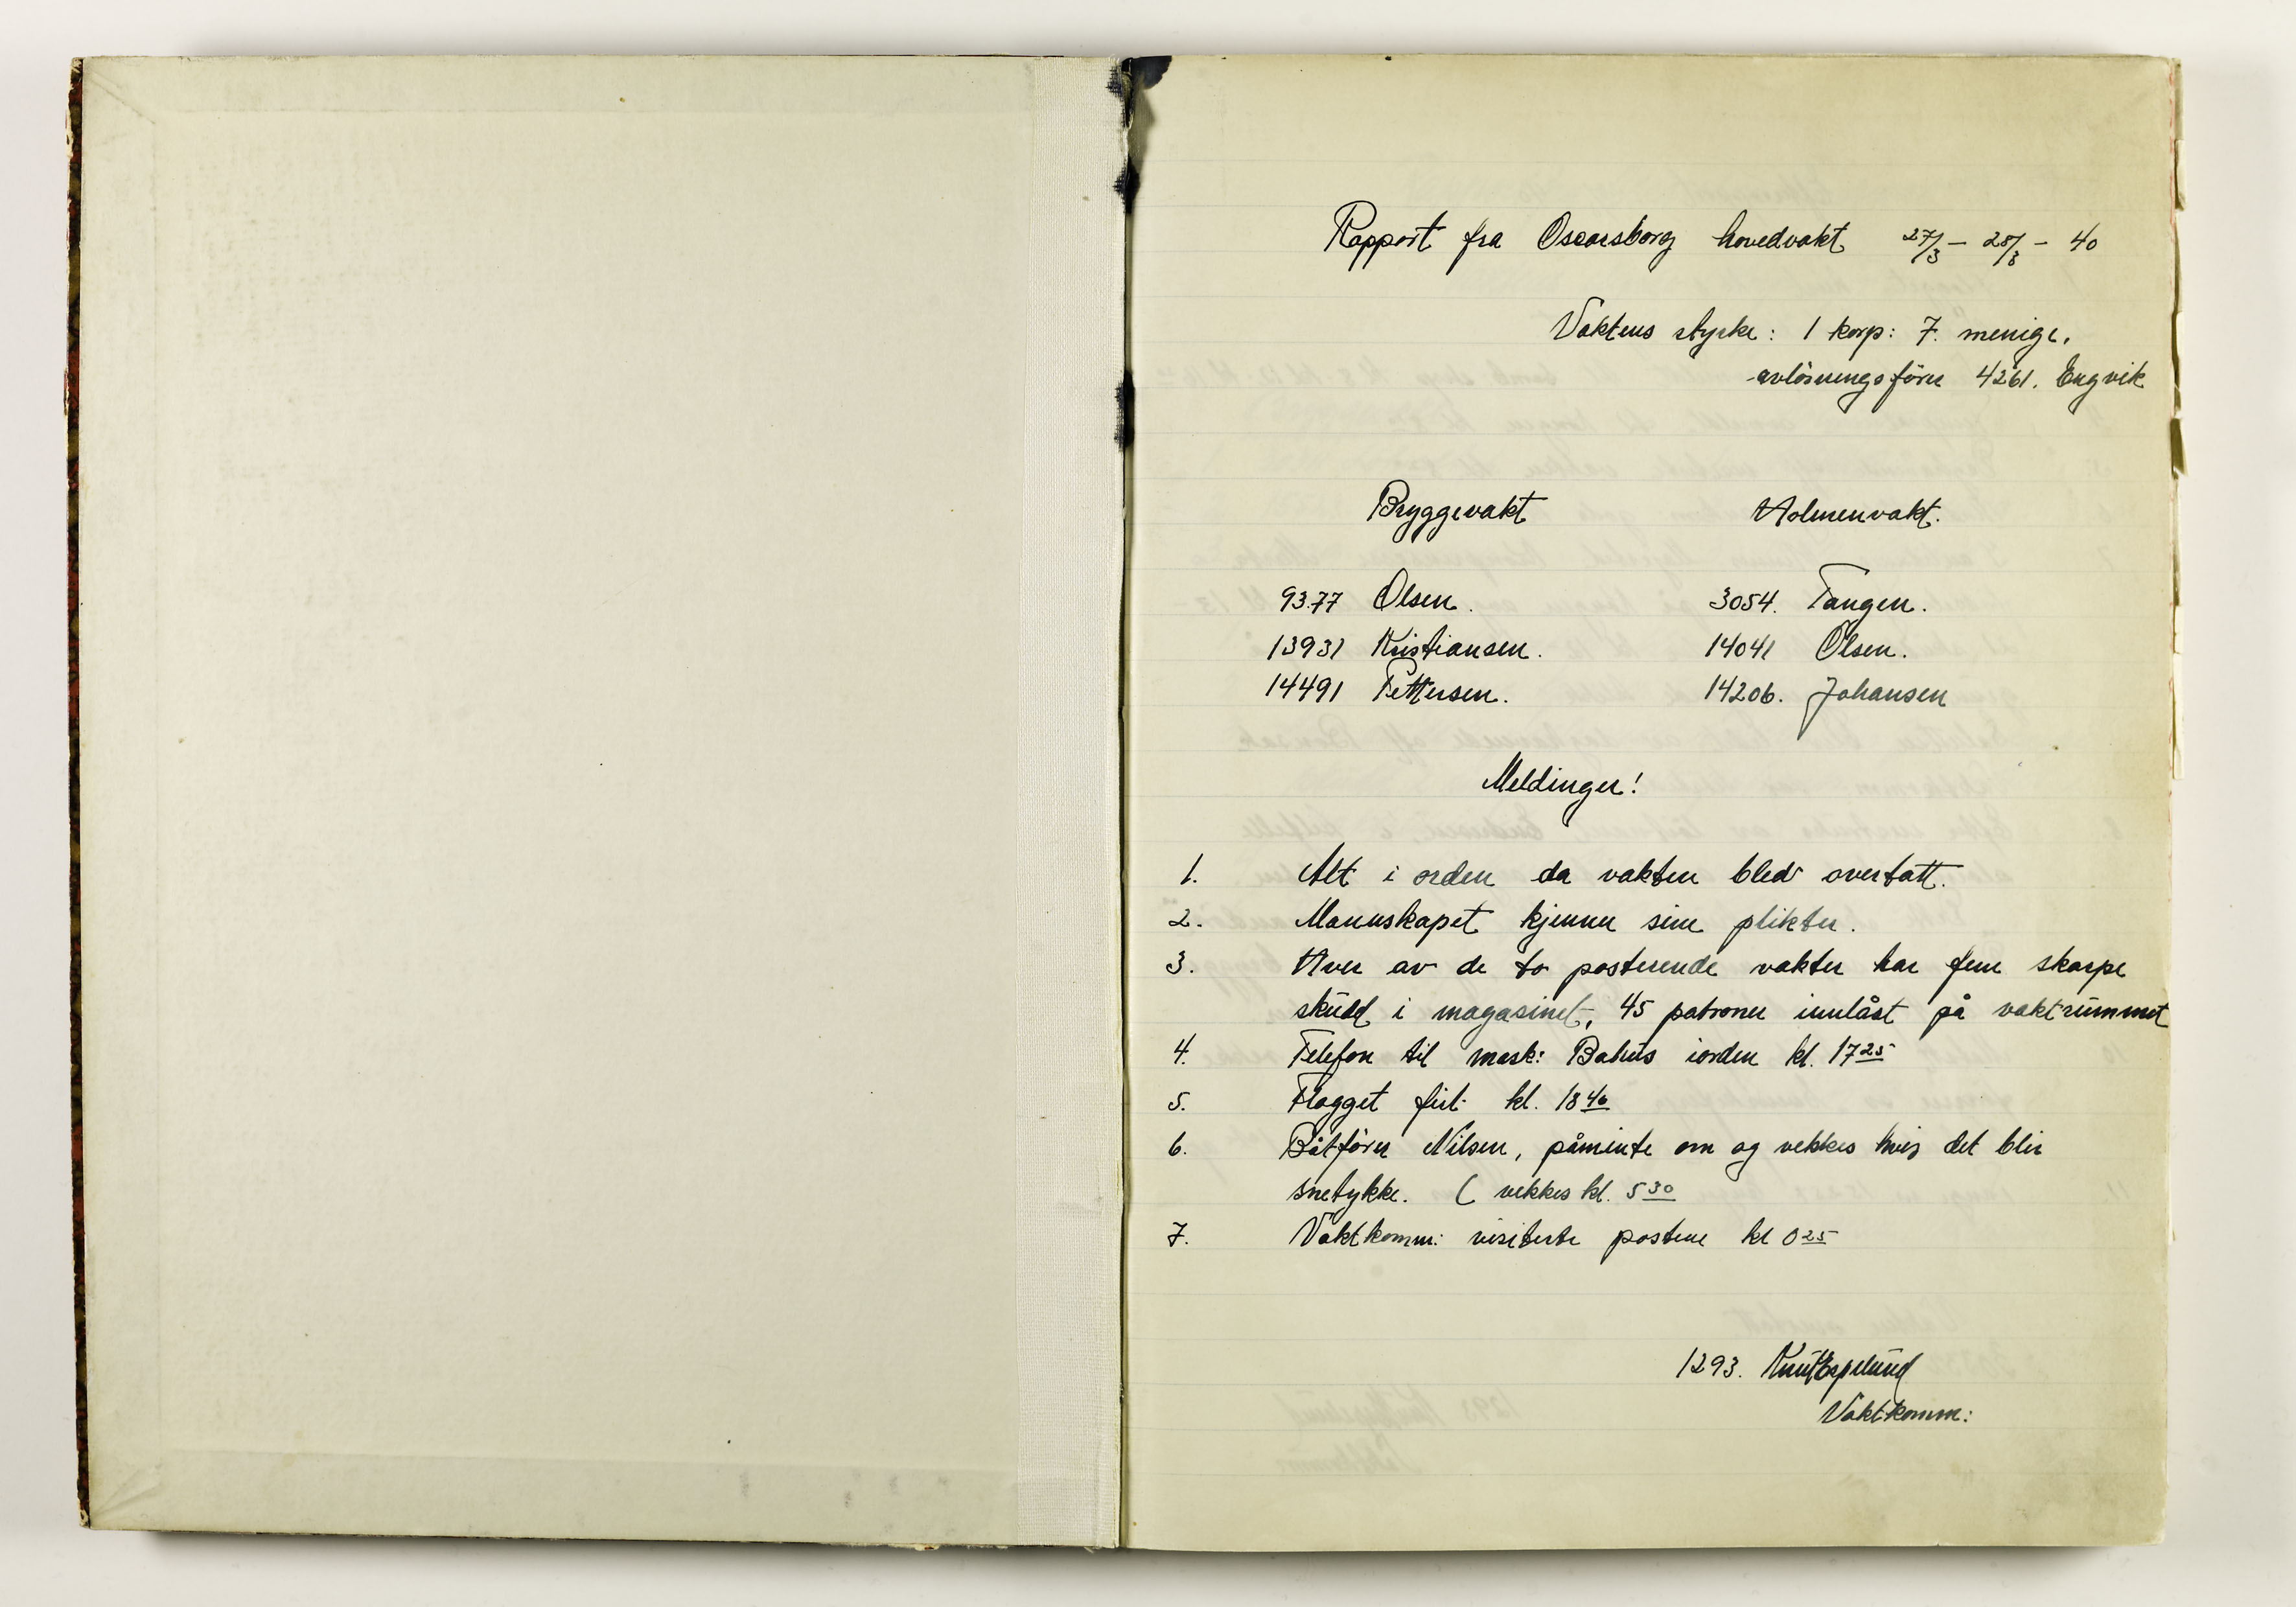 Rapport fra Oscarsborg hovedvakt 27/3 – 28/3 – 40
Vaktens styrke: 1 korp: 7. menige.
avlösningsförer 4261. Engvik
Bryggevakt Holmenvakt.
93.77 Olsen. 3054. Tangen.
13931 Kristiansen. 14041 Olsen.
14491 Pettersen. 14206. Johansen
Meldinger!
1. Alt i orden da vakten blev overtatt.
2. Mannskapet kjenner sine plikter.
3. Hver av de to posterende vakter har fem skarpe
skudd i magasinet, 45 patroner innlåst på vaktrummet
4. Telefon til mask: Bahus iorden kl. 17 25
5. Flagget firt kl. 18 40
6. Båtförer Nilsen, påminte om og vekkes hvis det blir
snetykke. ( vekkes kl. 5 30
7. Vaktkomm: visiterte postene kl 0 25
1293. Knut Espelund
Vaktkomm: